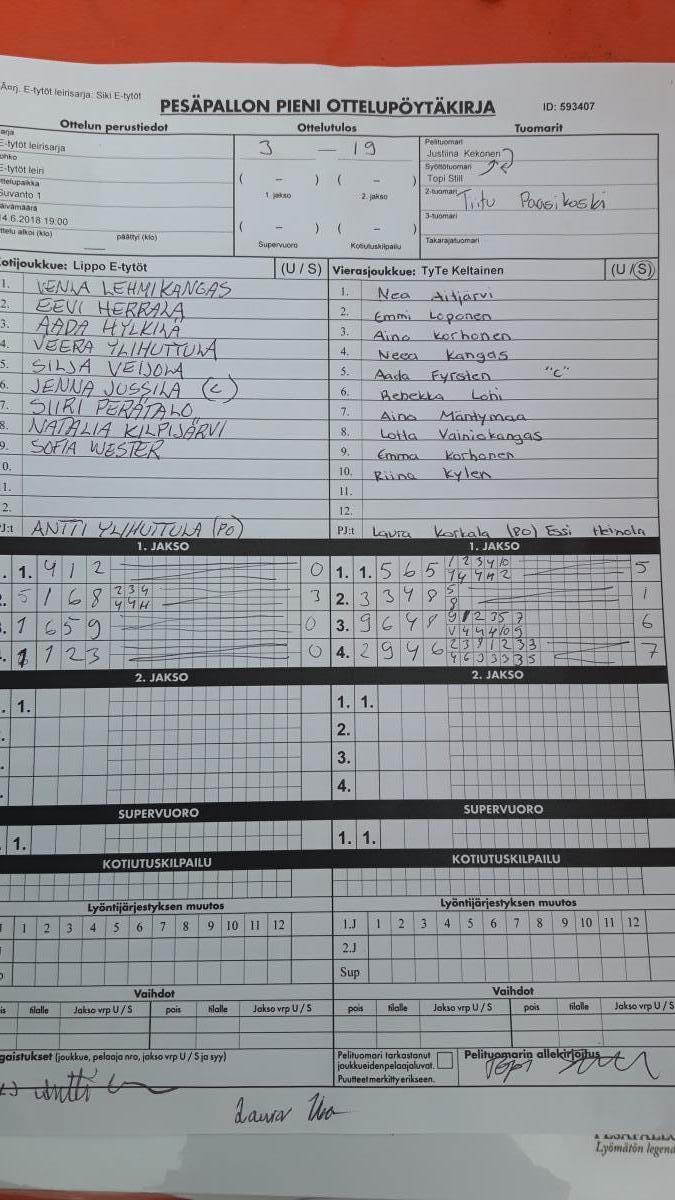 E-tytöt leirisarja: Siki E-tytöt
PESÄPALLON PIENI OTTELUPÖYTÄKIRJA ID: 593407
Ottelun perustiedot Ottelutulos Tuomarit
E-tytöt leirisarja
E-tytöt leiri
Suvanto 1
14.6.2018 19:00
päättyi (klo)
3 – 19
( – ) ( – )
1. jakso 2. jakso
( – ) ( – )
Supervuoro Kotiutuskilpailu
Pelituomari
Justiina Kekonen
Syöttötuomari
Topi Still
2-tuomari Tiitu Paasikoski
3-tuomari
Takarajatuomari
Kotijoukkue: Lippo E-tytöt (U / S)
1. VENLA LEHMIKANGAS
2. EEVI HERRALA
3. AADA HYLKILÄ
4. VEERA YLIHUTTULA
5. SILJA VEIJOLA
6. JENNA JUSSILA (C)
7. SIIRI PERÄTALO
8. NATALIA KILPIJÄRVI
9. SOFIA WESTER
0.
1.
2.
PJ:t ANTTI YLIHUTTULA (PO)
Vierasjoukkue: TyTe Keltainen (U / S)
1. Nea Äitjärvi
2. Emmi Loponen
3. Aino Korhonen
4. Neea Kangas
5. Aada Fyrsten "C"
6. Rebekka Lohi
7. Aino Mäntymaa
8. Lotta Vainiokangas
9. Emma Korhonen
10. Riina Kylen
11.
12.
PJ:t Laura Korkala (PO) Essi
1. JAKSO 1. JAKSO
1. 4 1 2 0
5 1 6 8 2 3 4 3
4 4 H
1 6 5 9 0
1 1 2 3 0
1. 1. 5 6 5 1 2 3 4 10 5
2. 3 3 4 8 5 1
8
3. 9 6 4 8 9 1 2 3 5 7 6
4. 2 9 4 6 2 3 9 1 2 3 3 7
4 6 3 3 3 3 5
2. JAKSO 2. JAKSO
1.
1. 1.
2.
3.
4.
SUPERVUORO SUPERVUORO
1.
1. 1.
KOTIUTUSKILPAILU KOTIUTUSKILPAILU
Lyöntijärjestyksen muutos Lyöntijärjestyksen muutos
1 2 3 4 5 6 7 8 9 10 11 12
1.J 1 2 3 4 5 6 7 8 9 10 11 12
2.J
Sup
Vaihdot Vaihdot
tilalle Jakso vrp U / S pois tilalle Jakso vrp U / S
pois tilalle Jakso vrp U / S pois tilalle Jakso vrp U / S
(joukkue, pelaaja nro, jakso vrp U / S ja syy)
Pelituomari tarkastanut
joukkueiden pelaajaluvat.
Puutteet merkitty erikseen.
Pelituomarin allekirjoitus
Topi
Antti
Laura
Lyömätön legend